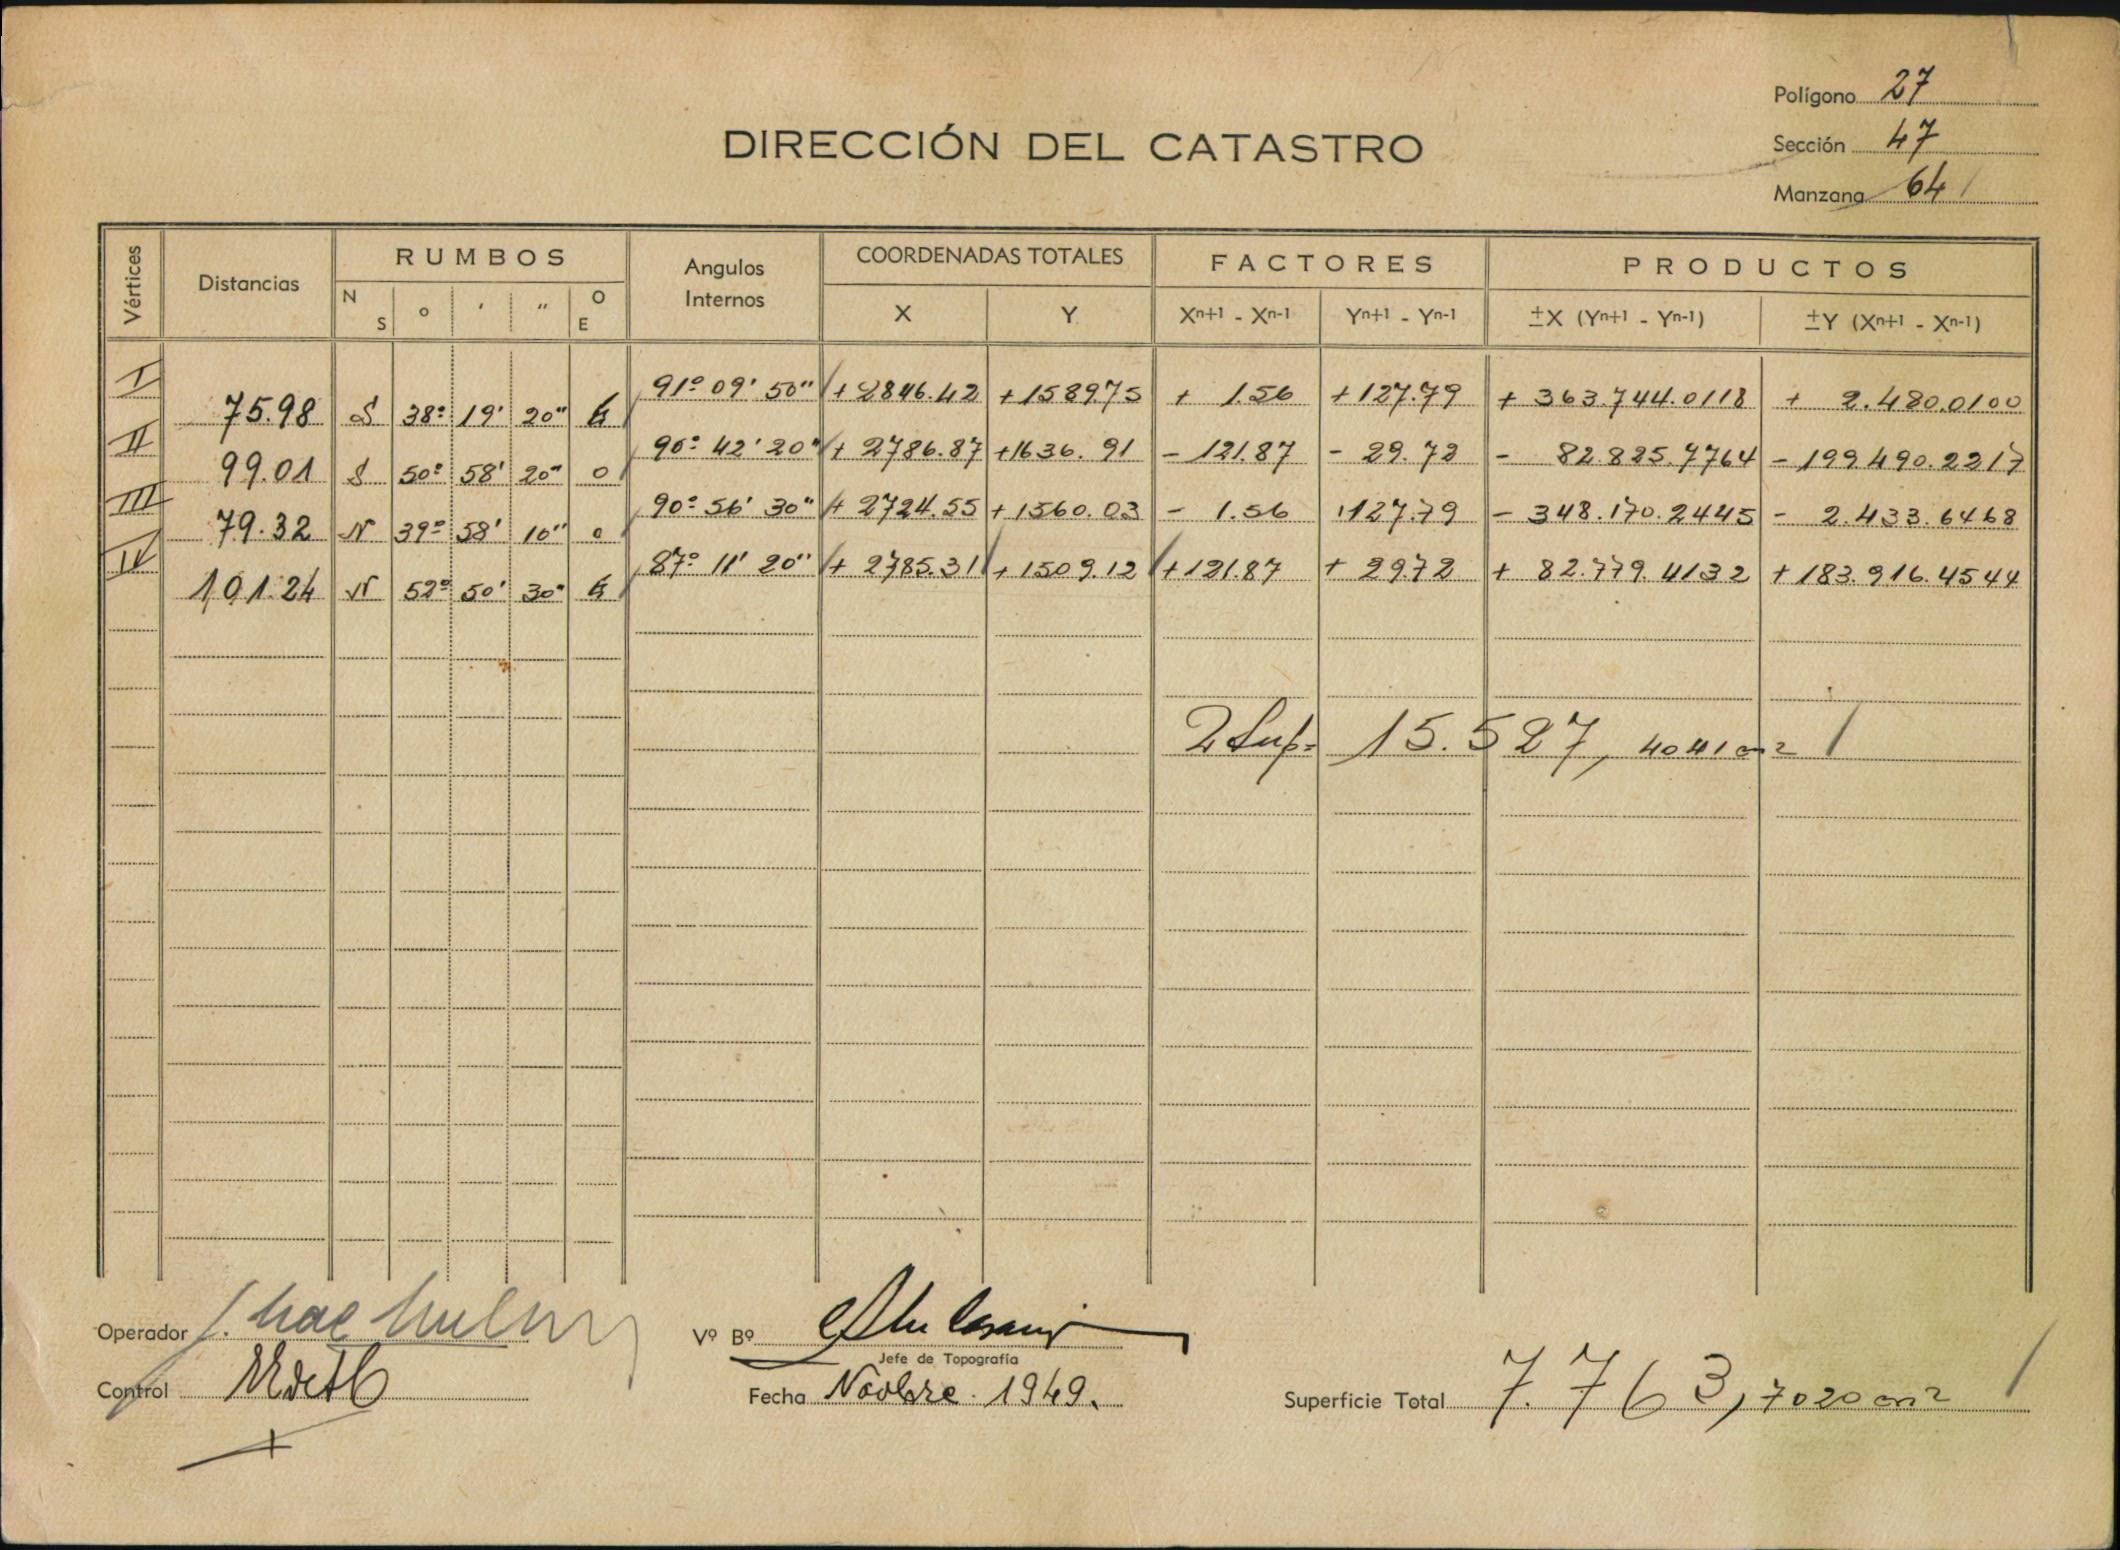 Polígono 27
DIRECCIÓN DEL CATASTRO
Sección 47
Manzana 64
Vértices Distancias RUMBOS Angulos Internos COORDENADAS TOTALES FACTORES PRODUCTOS
N S ° ' " O E X Y Xn+1 - Xn-1 Yn+1 - Yn-1 ±X (Yn+1 - Yn-1) ±Y (Xn+1 - Xn-1)
I 91º 09' 50" + 2846.42 + 1589.75 + 1.56 + 127.79 + 363.744.0118 + 2.480.0100
75.98 S 38º 19' 20" E
II 90º 42' 20" + 2786.87 + 1636.91 - 121.87 - 29.72 - 82.825.7764 - 199.490.2217
99.01 S 50º 58' 20" O
III 90º 56' 30" + 2724.55 + 1560.03 - 1.56 - 127.79 - 348.170.2445 - 2.433.6468
79.32 N 39º 58' 10" O
IV 87º 11' 20" + 2785.31 + 1509.12 + 121.87 + 29.72 + 82.779.4132 + 183.916.4544
101.24 N 52º 50' 30" E
2 Sup= 15.527,4041 m2
Operador
Vº Bº
Jefe de Topografía
Control
Fecha Novbre. 1949.
Superficie Total 7.763,7020 m2